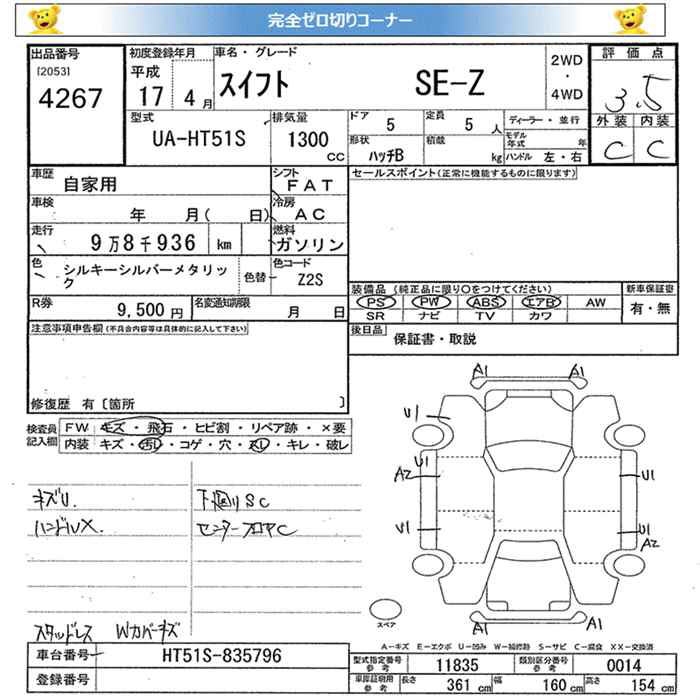 完全ゼロ切りコーナー
出品番号
[2053]
4267
初度登録年月
平成
17 4月
車名・グレード
スイフト SE-Z
2WD
・
4WD
評価点
3.5
外装 内装
C C
型式
UA-HT51S
排気量
1300
CC
ドア 5
定員 5 人
ディーラー・並行
形状
ハッチB
積載 kg
モデル年式 年
ハンドル 左・右
車歴
自家用
シフト
FAT
セールスポイント(正常に機能するものに限ります)
車検 年 月( 日)
冷房
AC
走行
9万8千936 km
燃料
ガソリン
色
シルキーシルバーメタリック
色替
色コード
Z2S
装備品 (純正品に限り〇をつけてください)
新車保証書
PS PW ABS エアB AW
SR ナビ TV カワ
有・無
R券
9,500円
名変通知期限
月 日
後日品
保証書・取説
注意事項申告欄(不具合内容等は具体的に記入して下さい)
修復歴 有〔箇所 〕
検査員記入欄
FW キズ・飛石・ヒビ割・リペア跡・×要
内装 キズ・汚れ・コゲ・穴・スレ・キレ・破レ
キズU.
ハンドルX.
下廻りSC
センターフロアC
スタッドレス Wカバーキズ
A1 A1
U1
U1
A2
U1
U1
U1
A2
A1 A1
スペア
A-キズ E-エクボ U-凹み W-補修跡 S-サビ C-腐食 XX-交換済
車台番号 HT51S-835796
登録番号
型式指定番号
参考
11835
類別区分番号
参考
0014
車庫証明用
参考
長さ 361 cm 幅 160 cm 高さ 154 cm